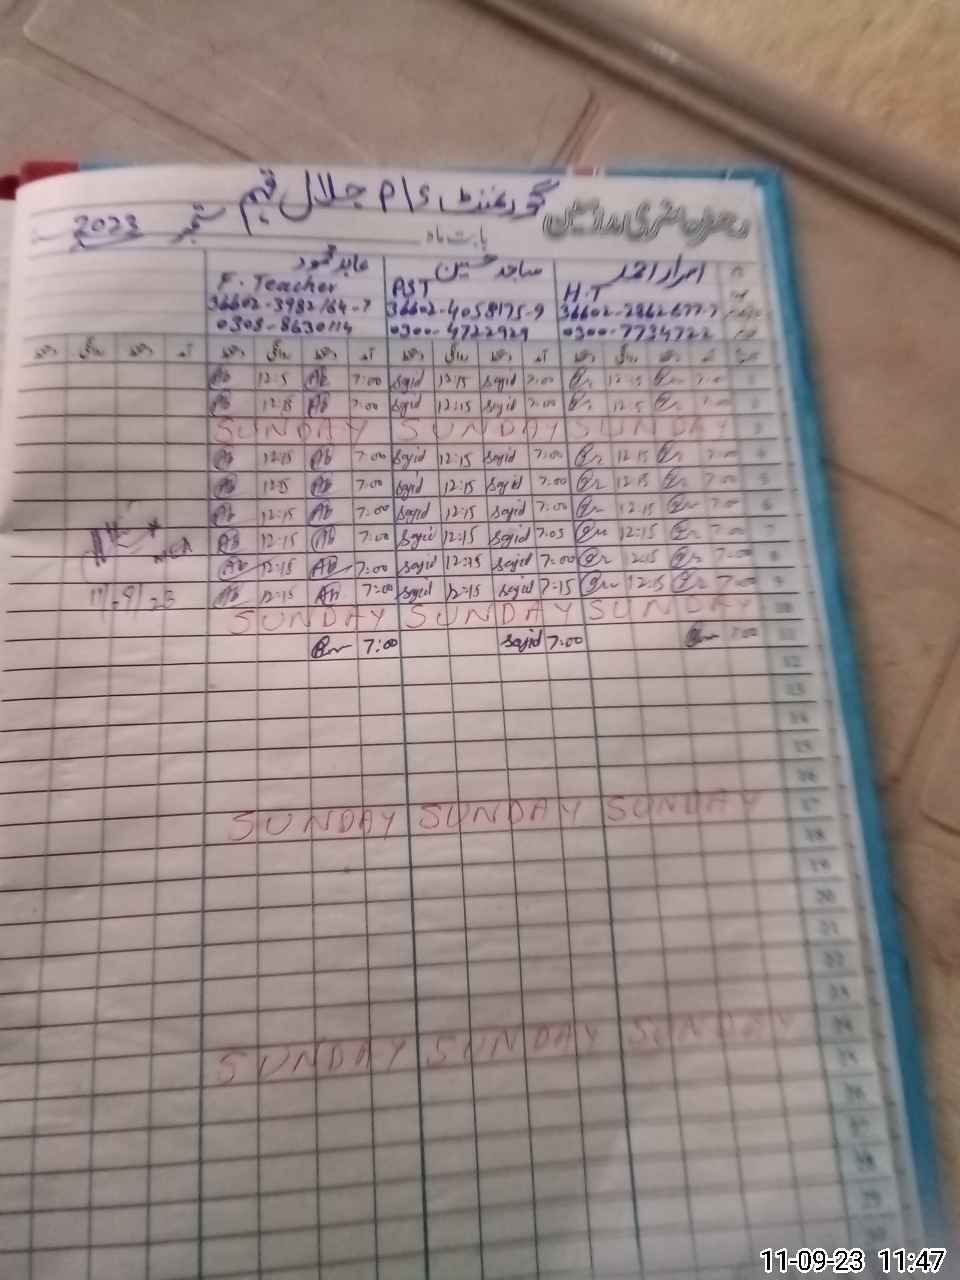 رجسٹر حاضری مدرسین گورنمنٹ P/S جلال قیم
بابت ماہ ستمبر 2023
اسرار احمد ساجد حسین عابد محمود
H.T PST F. Teacher
36602-2862677-7 36602-4058175-9 36602-3982164-7
0300-7734722 0300-4722929 0308-8630114
Ab 12:15 Ab 7:00 Sajid 12:15 Sajid 7:00 12:15 7:00 1
Ab 12:15 Ab 7:00 Sajid 12:15 Sajid 7:00 12:15 7:00 2
SUNDAY SUNDAY SUNDAY 3
Ab 12:15 Ab 7:00 Sajid 12:15 Sajid 7:00 12:15 7:00 4
Ab 12:15 Ab 7:00 Sajid 12:15 Sajid 7:00 12:15 7:00 5
Ab 12:15 Ab 7:00 Sajid 12:15 Sajid 7:00 12:15 7:00 6
Ab 12:15 Ab 7:00 Sajid 12:15 Sajid 7:05 12:15 7:00 7
MEA
Ab 12:15 Ab 7:00 Sajid 12:15 Sajid 7:00 12:15 7:00 8
11/-9/-23 Ab 12:15 Ab 7:00 Sajid 12:15 Sajid 7:15 12:15 7:00 9
SUNDAY SUNDAY SUNDAY 10
7:00 Sajid 7:00 7:00 11
12
13
14
15
16
SUNDAY SUNDAY SUNDAY 17
18
19
20
21
22
23
SUNDAY SUNDAY SUNDAY 24
25
26
27
28
29
30
11-09-23 11:47